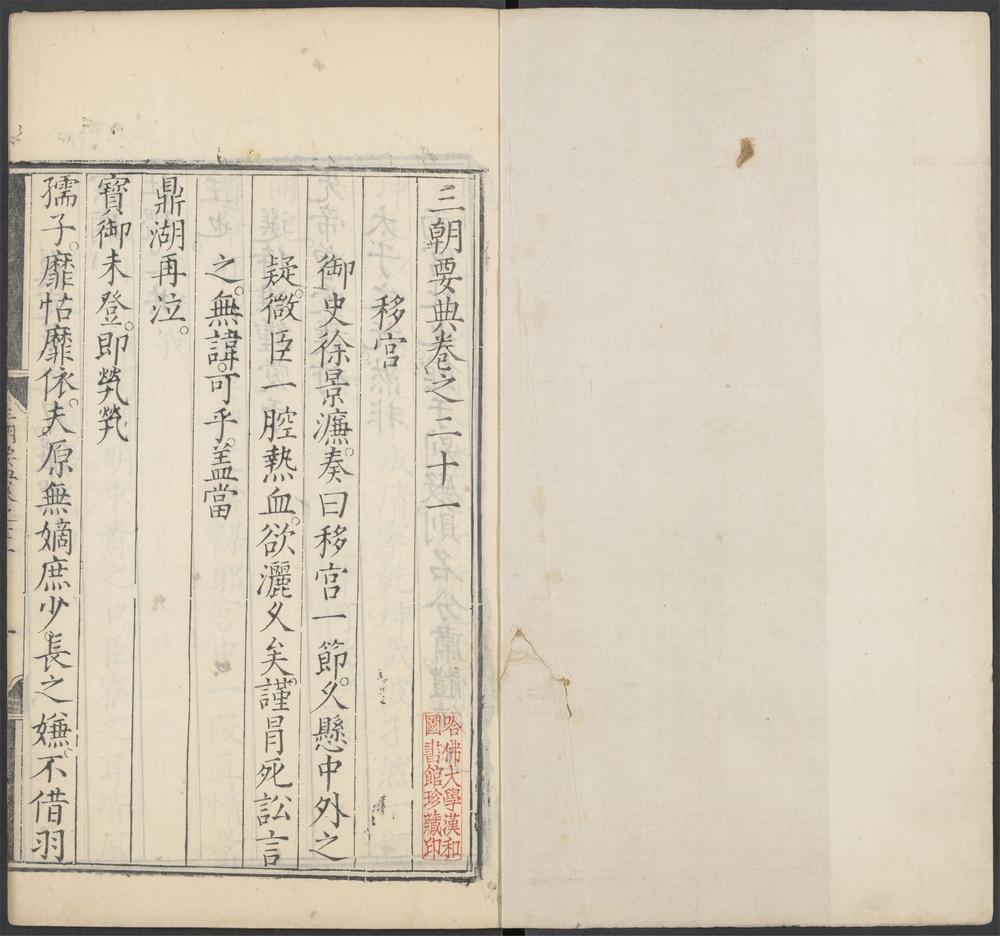 三朝要典卷之二十一
移宮
御史徐景濂。奏曰移宮一節。久懸中外之
疑。微臣一腔熱血。欲灑久矣。謹冐死訟言
之。無諱。可乎。盖當
鼎湖再泣。
寶御未登。即煢煢
孺子。靡怙靡依。夫原無嫡庶少。長之嫌。不借羽
哈佛大學漢和
圖書館珍藏印